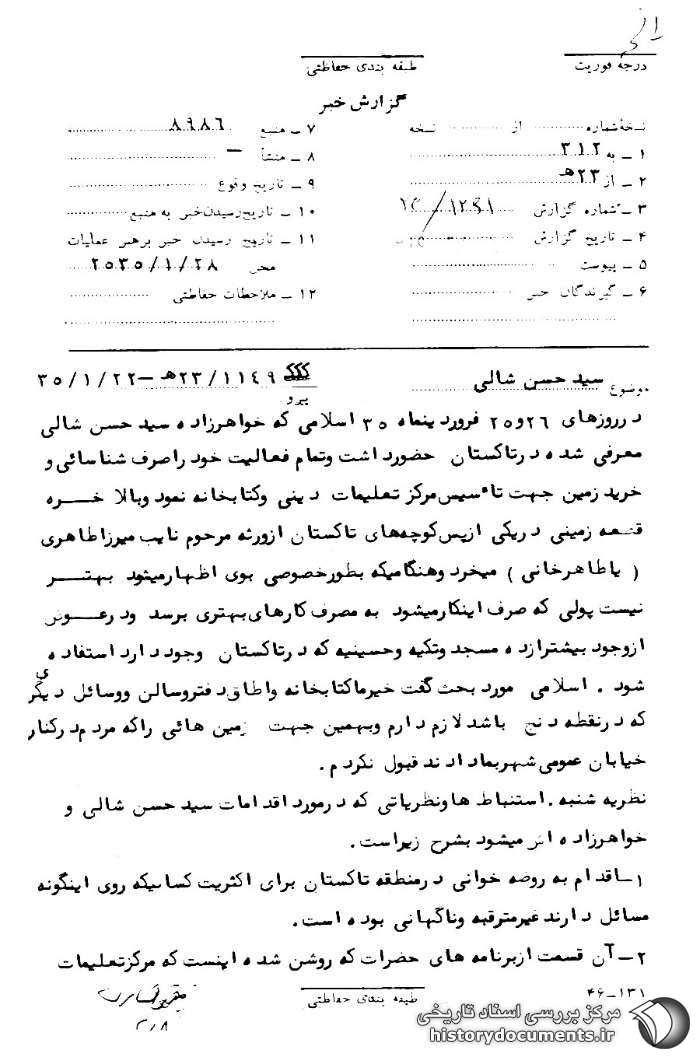 درجه فوریت
طبقه بندی حفاظتی
گزارش خبر
نسخه شماره ............ از ............ نسخه
۱ ـ به ۳۱۲
۲ ـ از ۲۳ هـ
۳ ـ شماره گزارش
۴ ـ تاریخ گزارش
۵ ـ پیوست
۶ ـ گیرندگان خبر
۷ ـ منبع ۸۹۸۶
۸ ـ منشأ ـ
۹ ـ تاریخ وقوع
۱۰ ـ تاریخ رسیدن خبر به منبع
۱۱ ـ تاریخ رسیدن خبر برهبر عملیات
محل ۲۵۳۵/۱/۲۸
۱۲ ـ ملاحظات حفاظتی
موضوع سید حسن شالی
پیرو ۲۳/۱۱۴۹ هـ ـ ۳۵/۱/۲۲
درروزهای ۲۶و۲۵ فروردینماه ۳۵ اسلامی که خواهرزاده سید حسن شالی
معرفی شده درتاکستان حضورداشت وتمام فعالیت خود راصرف شناسائی و
خرید زمین جهت تاسیس مرکز تعلیمات دینی وکتابخانه نمود وبالاخره
قطعه زمینی دریکی ازپس کوچه‌های تاکستان ازورثه مرحوم نایب میرزاطاهری
( یاطاهرخانی ) میخرد وهنگامیکه بطورخصوصی بوی اظهارمیشود بهتر
نیست پولی که صرف اینکارمیشود به مصرف کارهای بهتری برسد ودرعوض
ازوجود بیشترازده مسجد وتکیه وحسینیه که درتاکستان وجود دارد استفاده
شود . اسلامی مورد بحث گفت خیرماکتابخانه واطاق دفتروسالن ووسائل دیگری
که درنقطه دنج باشد لازم دارم وبهمین جهت زمین هائی راکه مردم درکنار
خیابان عمومی شهربمادادند قبول نکردم .
نظریه شنبه . استنباط هاونظریاتی که درمورد اقدامات سید حسن شالی و
خواهرزاده اش میشود بشرح زیراست .
۱ـ اقدام به روضه خوانی درمنطقه تاکستان برای اکثریت کسانیکه روی اینگونه
مسائل دارند غیرمترقبه وناگهانی بوده است .
۲ـ آن قسمت ازبرنامه های حضرات که روشن شده اینست که مرکزتعلیمات
۴۶-۱۳۱
طبقه بندی حفاظتی
مرکز بررسی اسناد تاریخی
historydocuments.ir